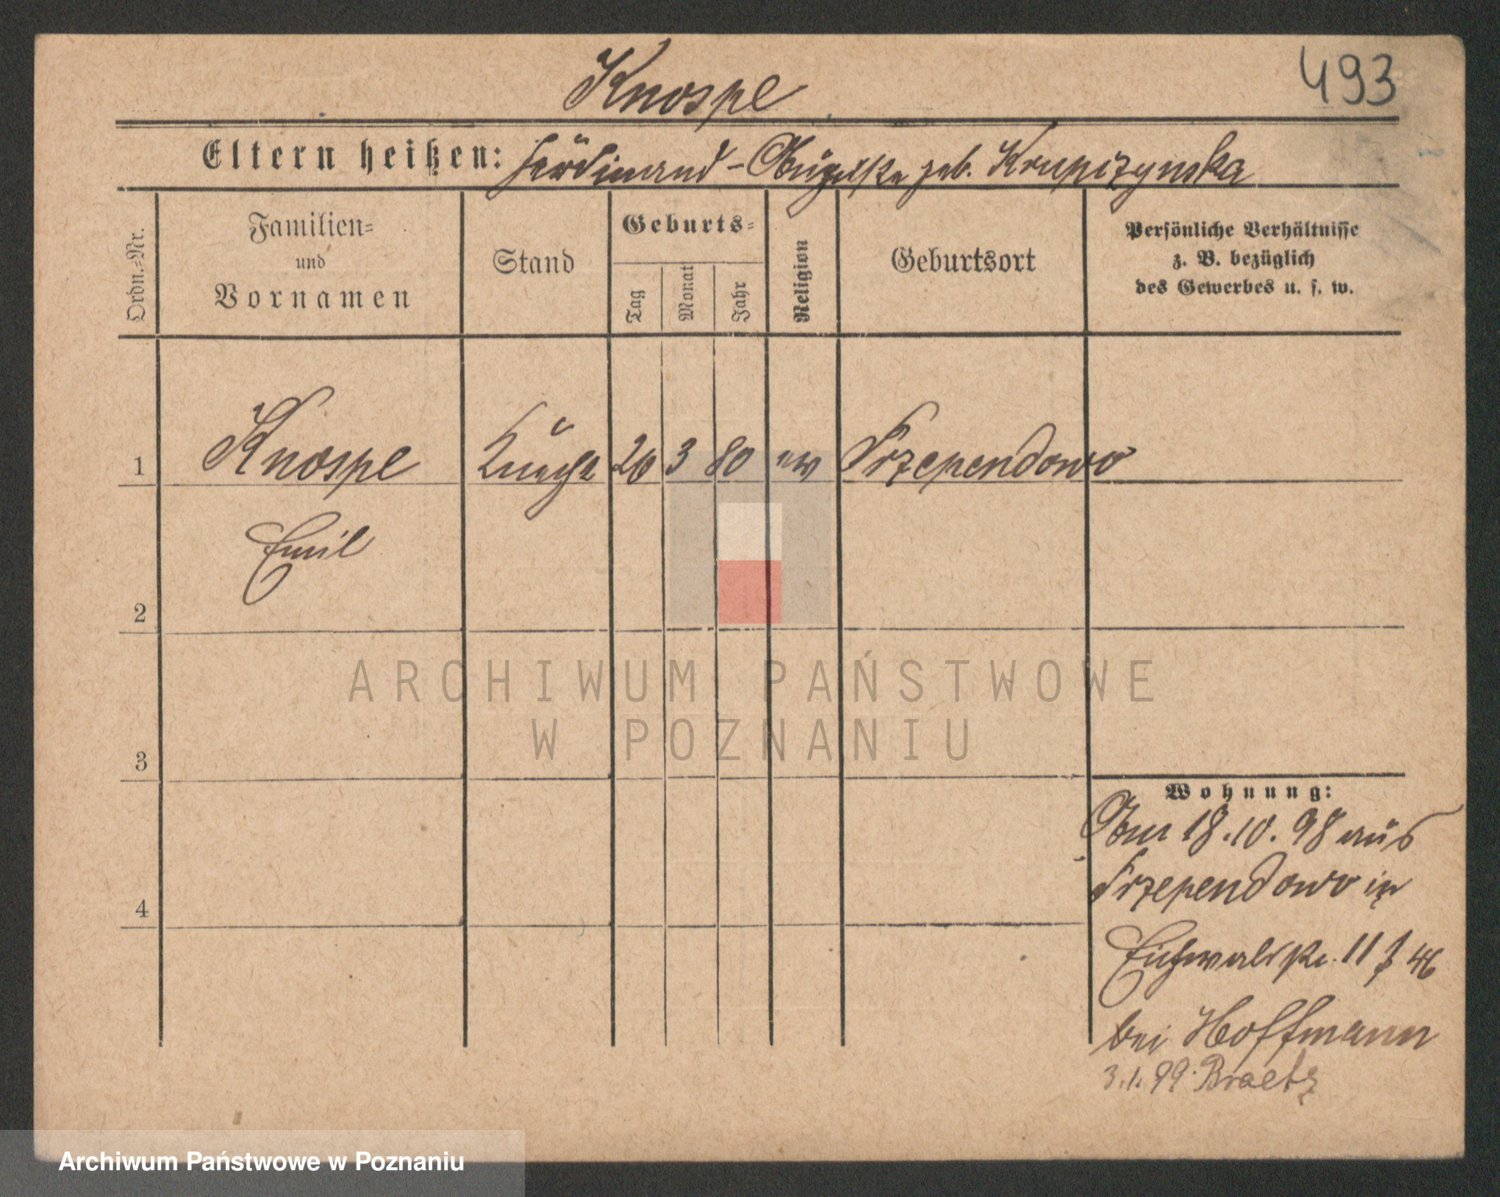 Knospe
493
Eltern heißen: Ferdinand - Auguste geb. Krupczynska
Ordn.-Nr.
Familien-
und
Vornamen
Stand
Geburts-
Tag
Monat
Jahr
Religion
Geburtsort
Persönliche Verhältnisse
z. B. bezüglich
des Gewerbes u. s. w.
1 Knospe Knecht 26 3 80 ev Trzependowo
Emil
2
3
4
Wohnung:
Am 18.10.98 aus
Trzependowo in
Eichwaldstr. 11 46
bei Hoffmann
3.1.99. Braetz
ARCHIWUM PAŃSTWOWE
W POZNANIU
Archiwum Państwowe w Poznaniu